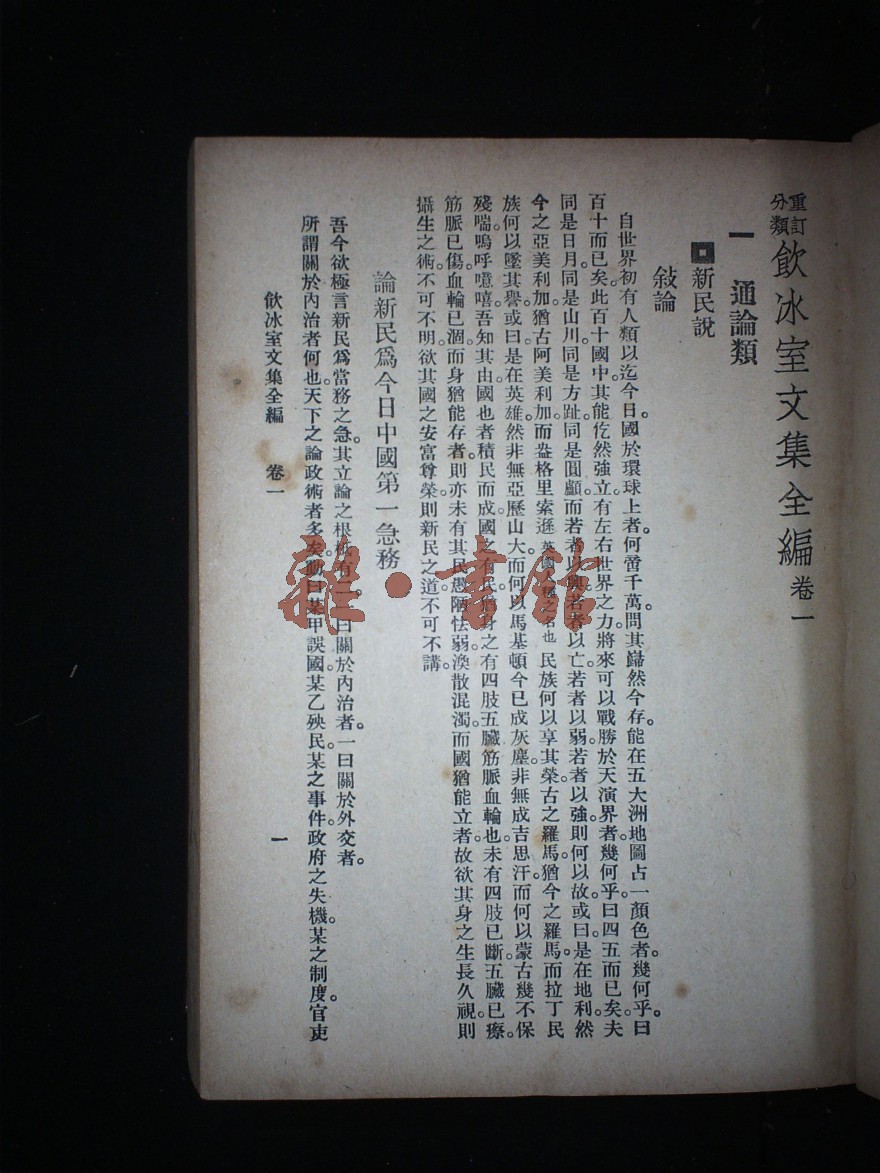 重訂分類飲冰室文集全編 卷一
一 通論類
新民說
敍論
自世界初有人類以迄今日。國於環球上者。何啻千萬。問其巋然今存。能在五大洲地圖占一顏色者。幾何乎。曰
百十而已矣。此百十國中。其能仡然強立有左右世界之力將來可以戰勝於天演界者幾何乎。曰四五而已矣。夫
同是日月。同是山川。同是方趾。同是圓顱。而若者以興。若者以亡。若者以弱。若者以強。則何以故。或曰。是在地利。然
今之亞美利加。猶古阿美利加。而盎格里索遜英國人種之名也民族何以享其榮。古之羅馬。猶今之羅馬。而拉丁民
族何以墜其譽。或曰是在英雄。然非無亞歷山大。而何以馬基頓今已成灰塵。非無成吉思汗。而何以蒙古幾不保
殘喘。嗚呼噫嘻。吾知其由。國也者積民而成。國之有民。猶身之有四肢五臟筋脈血輪也。未有四肢已斷。五臟已瘵。
筋脈已傷。血輪已涸。而身猶能存者。則亦未有其民愚陋怯弱。渙散混濁。而國猶能立者。故欲其身之生長久視。則
攝生之術。不可不明。欲其國之安富尊榮。則新民之道。不可不講。
論新民爲今日中國第一急務
吾今欲極言新民爲當務之急。其立論之根柢有二。一曰關於內治者。一曰關於外交者。
所謂關於內治者何也。天下之論政術者多矣。動曰某甲誤國。某乙殃民。某之事件。政府之失機。某之制度。官吏
飲冰室文集全編 卷一 一
雜·書館